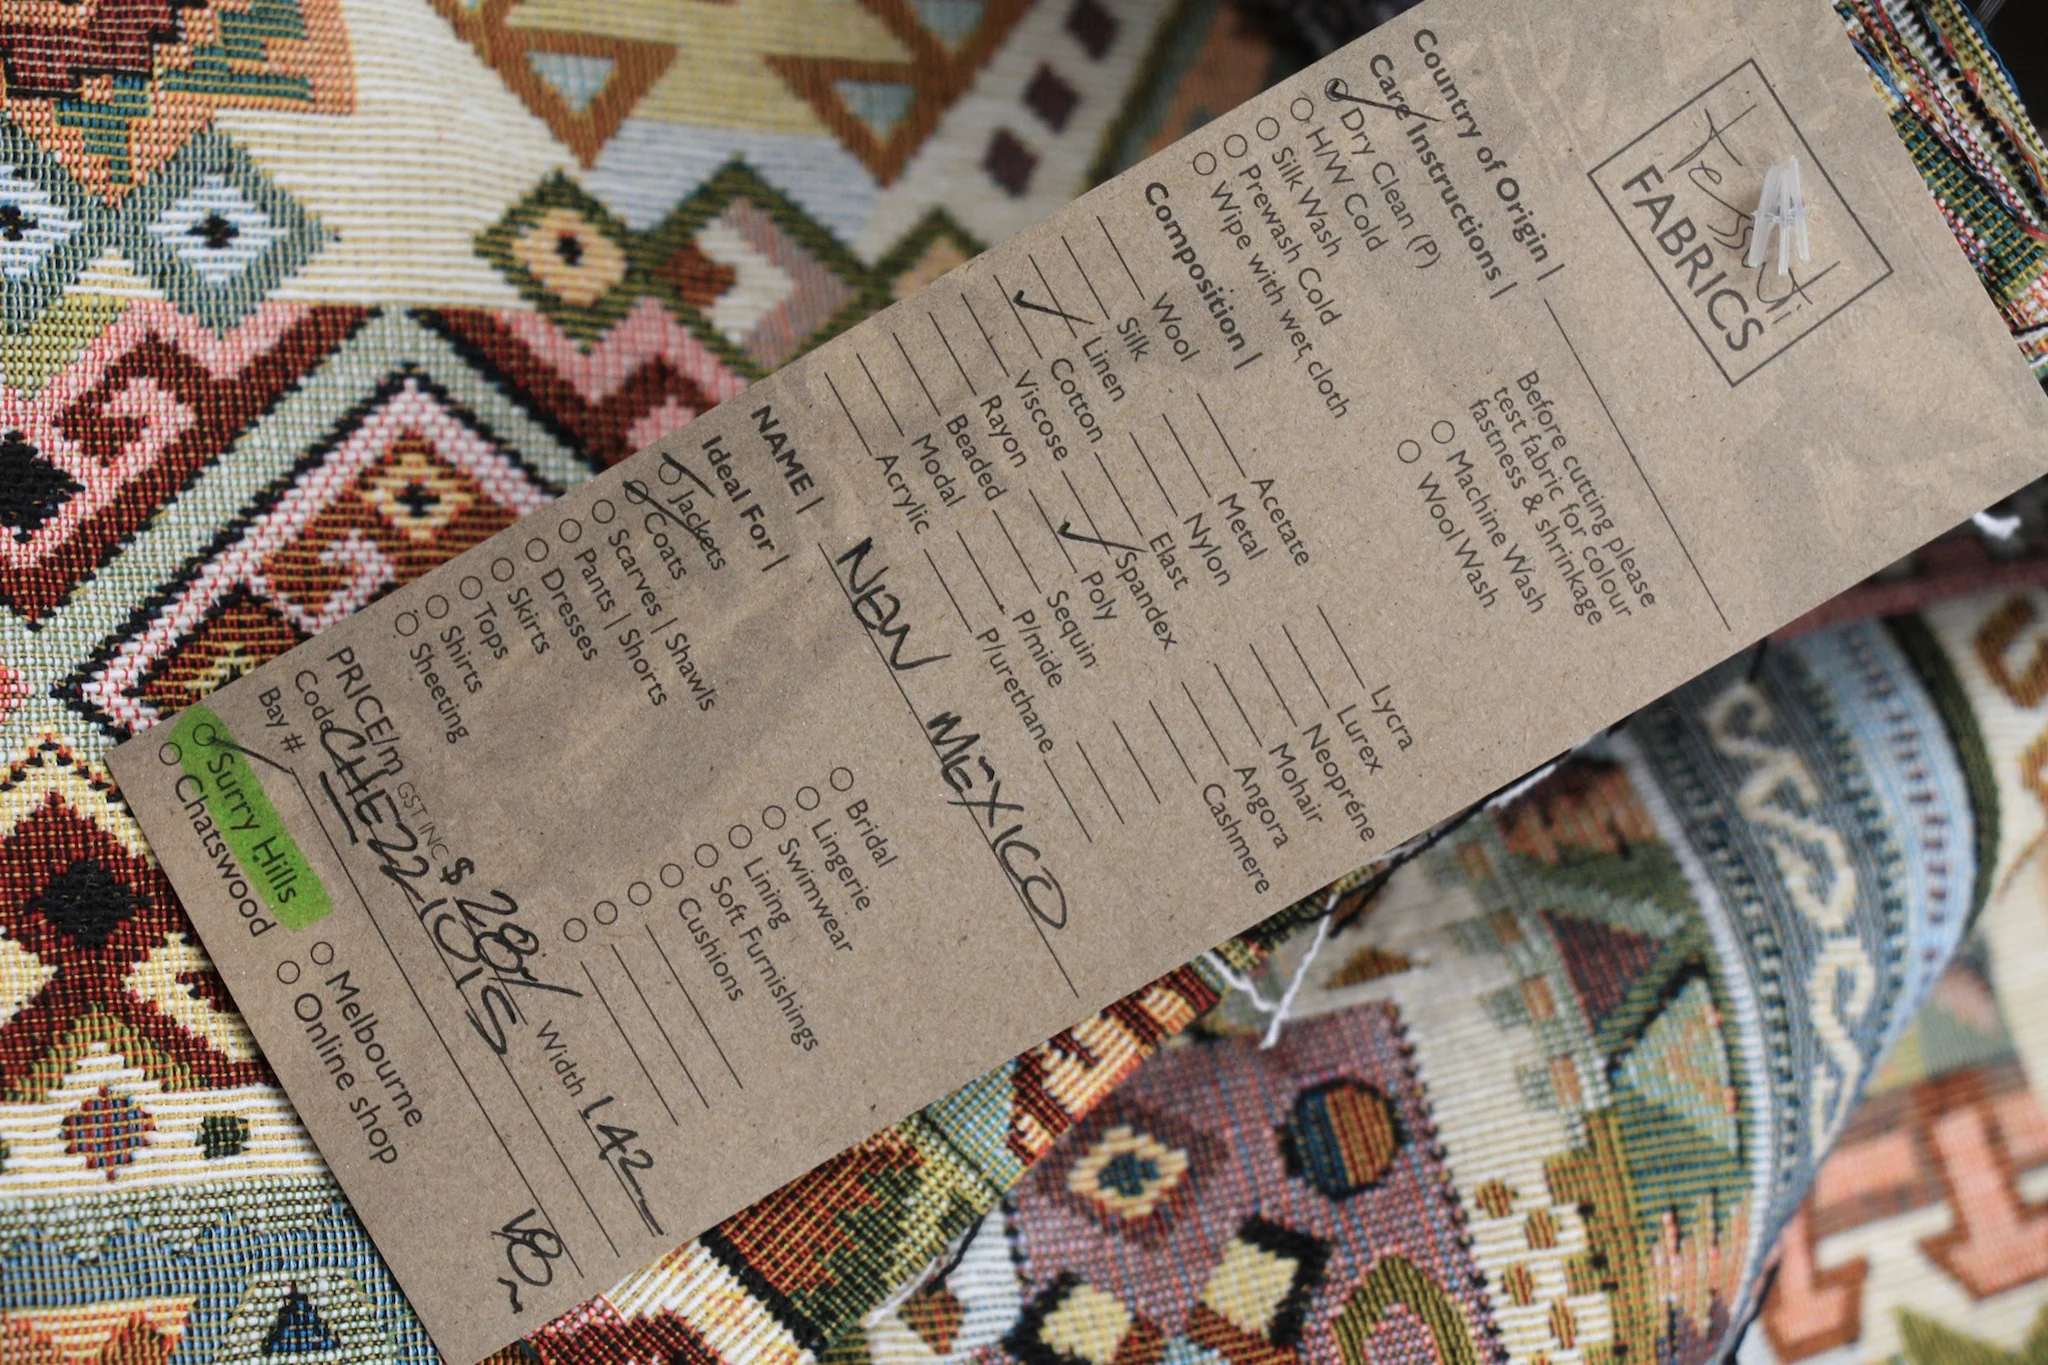 Tessuti
FABRICS
Country of Origin |
Care Instructions |
Before cutting please
test fabric for colour
fastness & shrinkage
Dry Clean (P)
H/W Cold
Silk Wash
Prewash Cold Machine Wash
Wipe with wet cloth Wool Wash
Composition |
Wool Acetate Lycra
Silk Metal Lurex
Linen Nylon Neopréne
Cotton Elast Mohair
Viscose Spandex Angora
Rayon Poly Cashmere
Beaded Sequin
Modal P/mide
Acrylic P/urethane
NAME | NEW MEXICO
Ideal For |
Jackets Bridal
Coats Lingerie
Scarves | Shawls Swimwear
Pants | Shorts Lining
Dresses Soft Furnishings
Skirts Cushions
Tops
Shirts
Sheeting
PRICE/m GST INC $ 28/ Width 142
Code CHE221015
Bay # V8
Surry Hills Melbourne
Chatswood Online shop